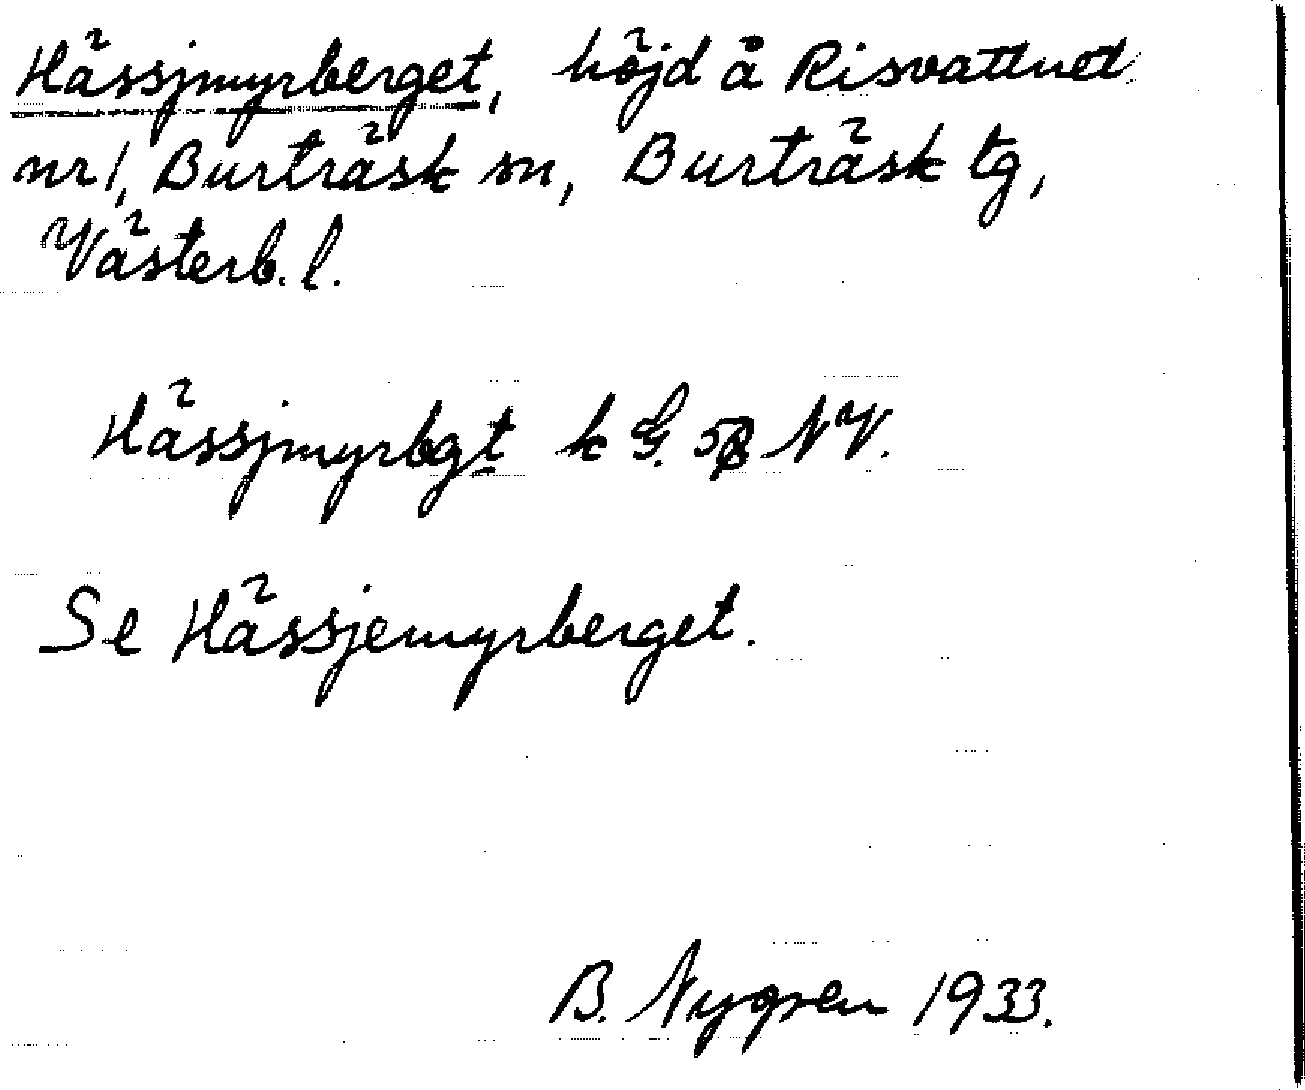 Hässjmyrberget, höjd å Risvattnet
nr 1, Burträsk sn, Burträsk tg,
Västerb. l.
Hässjmyrbgt k G. 58 NV.
Se Hässjemyrberget.
B. Nygren 1933.